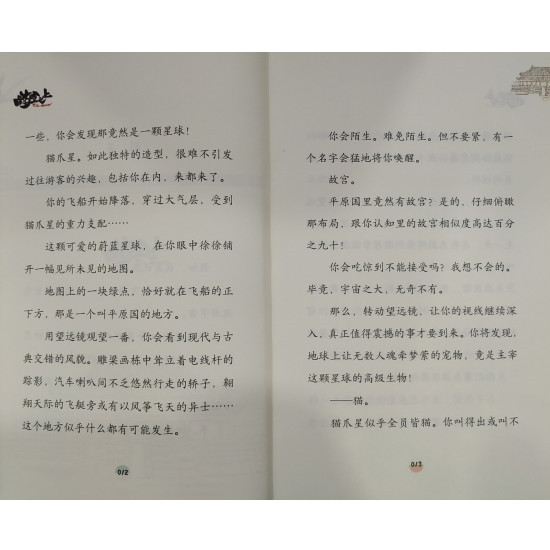 一些，你会发现那竟然是一颗星球！
猫爪星。如此独特的造型，很难不引发
过往游客的兴趣，包括你在内，来都来了。
你的飞船开始降落，穿过大气层，受到
猫爪星的重力支配……
这颗可爱的蔚蓝星球，在你眼中徐徐铺
开一幅见所未见的地图。
地图上的一块绿点，恰好就在飞船的正
下方，那是一个叫平原国的地方。
用望远镜观望一番，你会看到现代与古
典交错的风貌。雕梁画栋中耸立着电线杆的
踪影，汽车喇叭间不乏悠然行走的轿子，翱
翔天际的飞艇旁或有以风筝飞天的异士……
这个地方似乎什么都有可能发生。
0/2
你会陌生。难免陌生。但不要紧，有一
个名字会猛地将你唤醒。
故宫。
平原国里竟然有故宫？是的，仔细俯瞰
那布局，跟你认知里的故宫相似度高达百分
之九十！
你会吃惊到不能接受吗？我想不会的。
毕竟，宇宙之大，无奇不有。
那么，转动望远镜，让你的视线继续深
入，真正值得震撼的事才要到来。你将发现，
地球上让无数人魂牵梦萦的宠物，竟是主宰
这颗星球的高级生物！
——猫。
猫爪星似乎全员皆猫。你叫得出或叫不
0/3